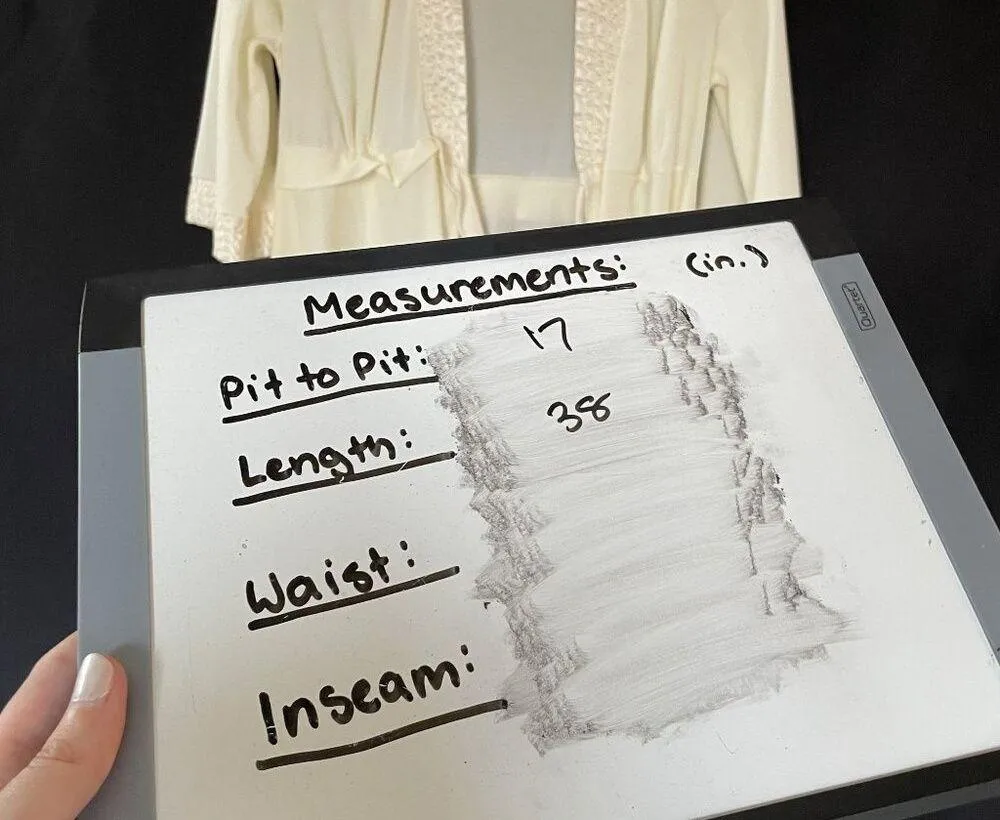 Measurements: (in.)
Pit to Pit: 17
Length: 38
Waist:
Inseam:
Quartet